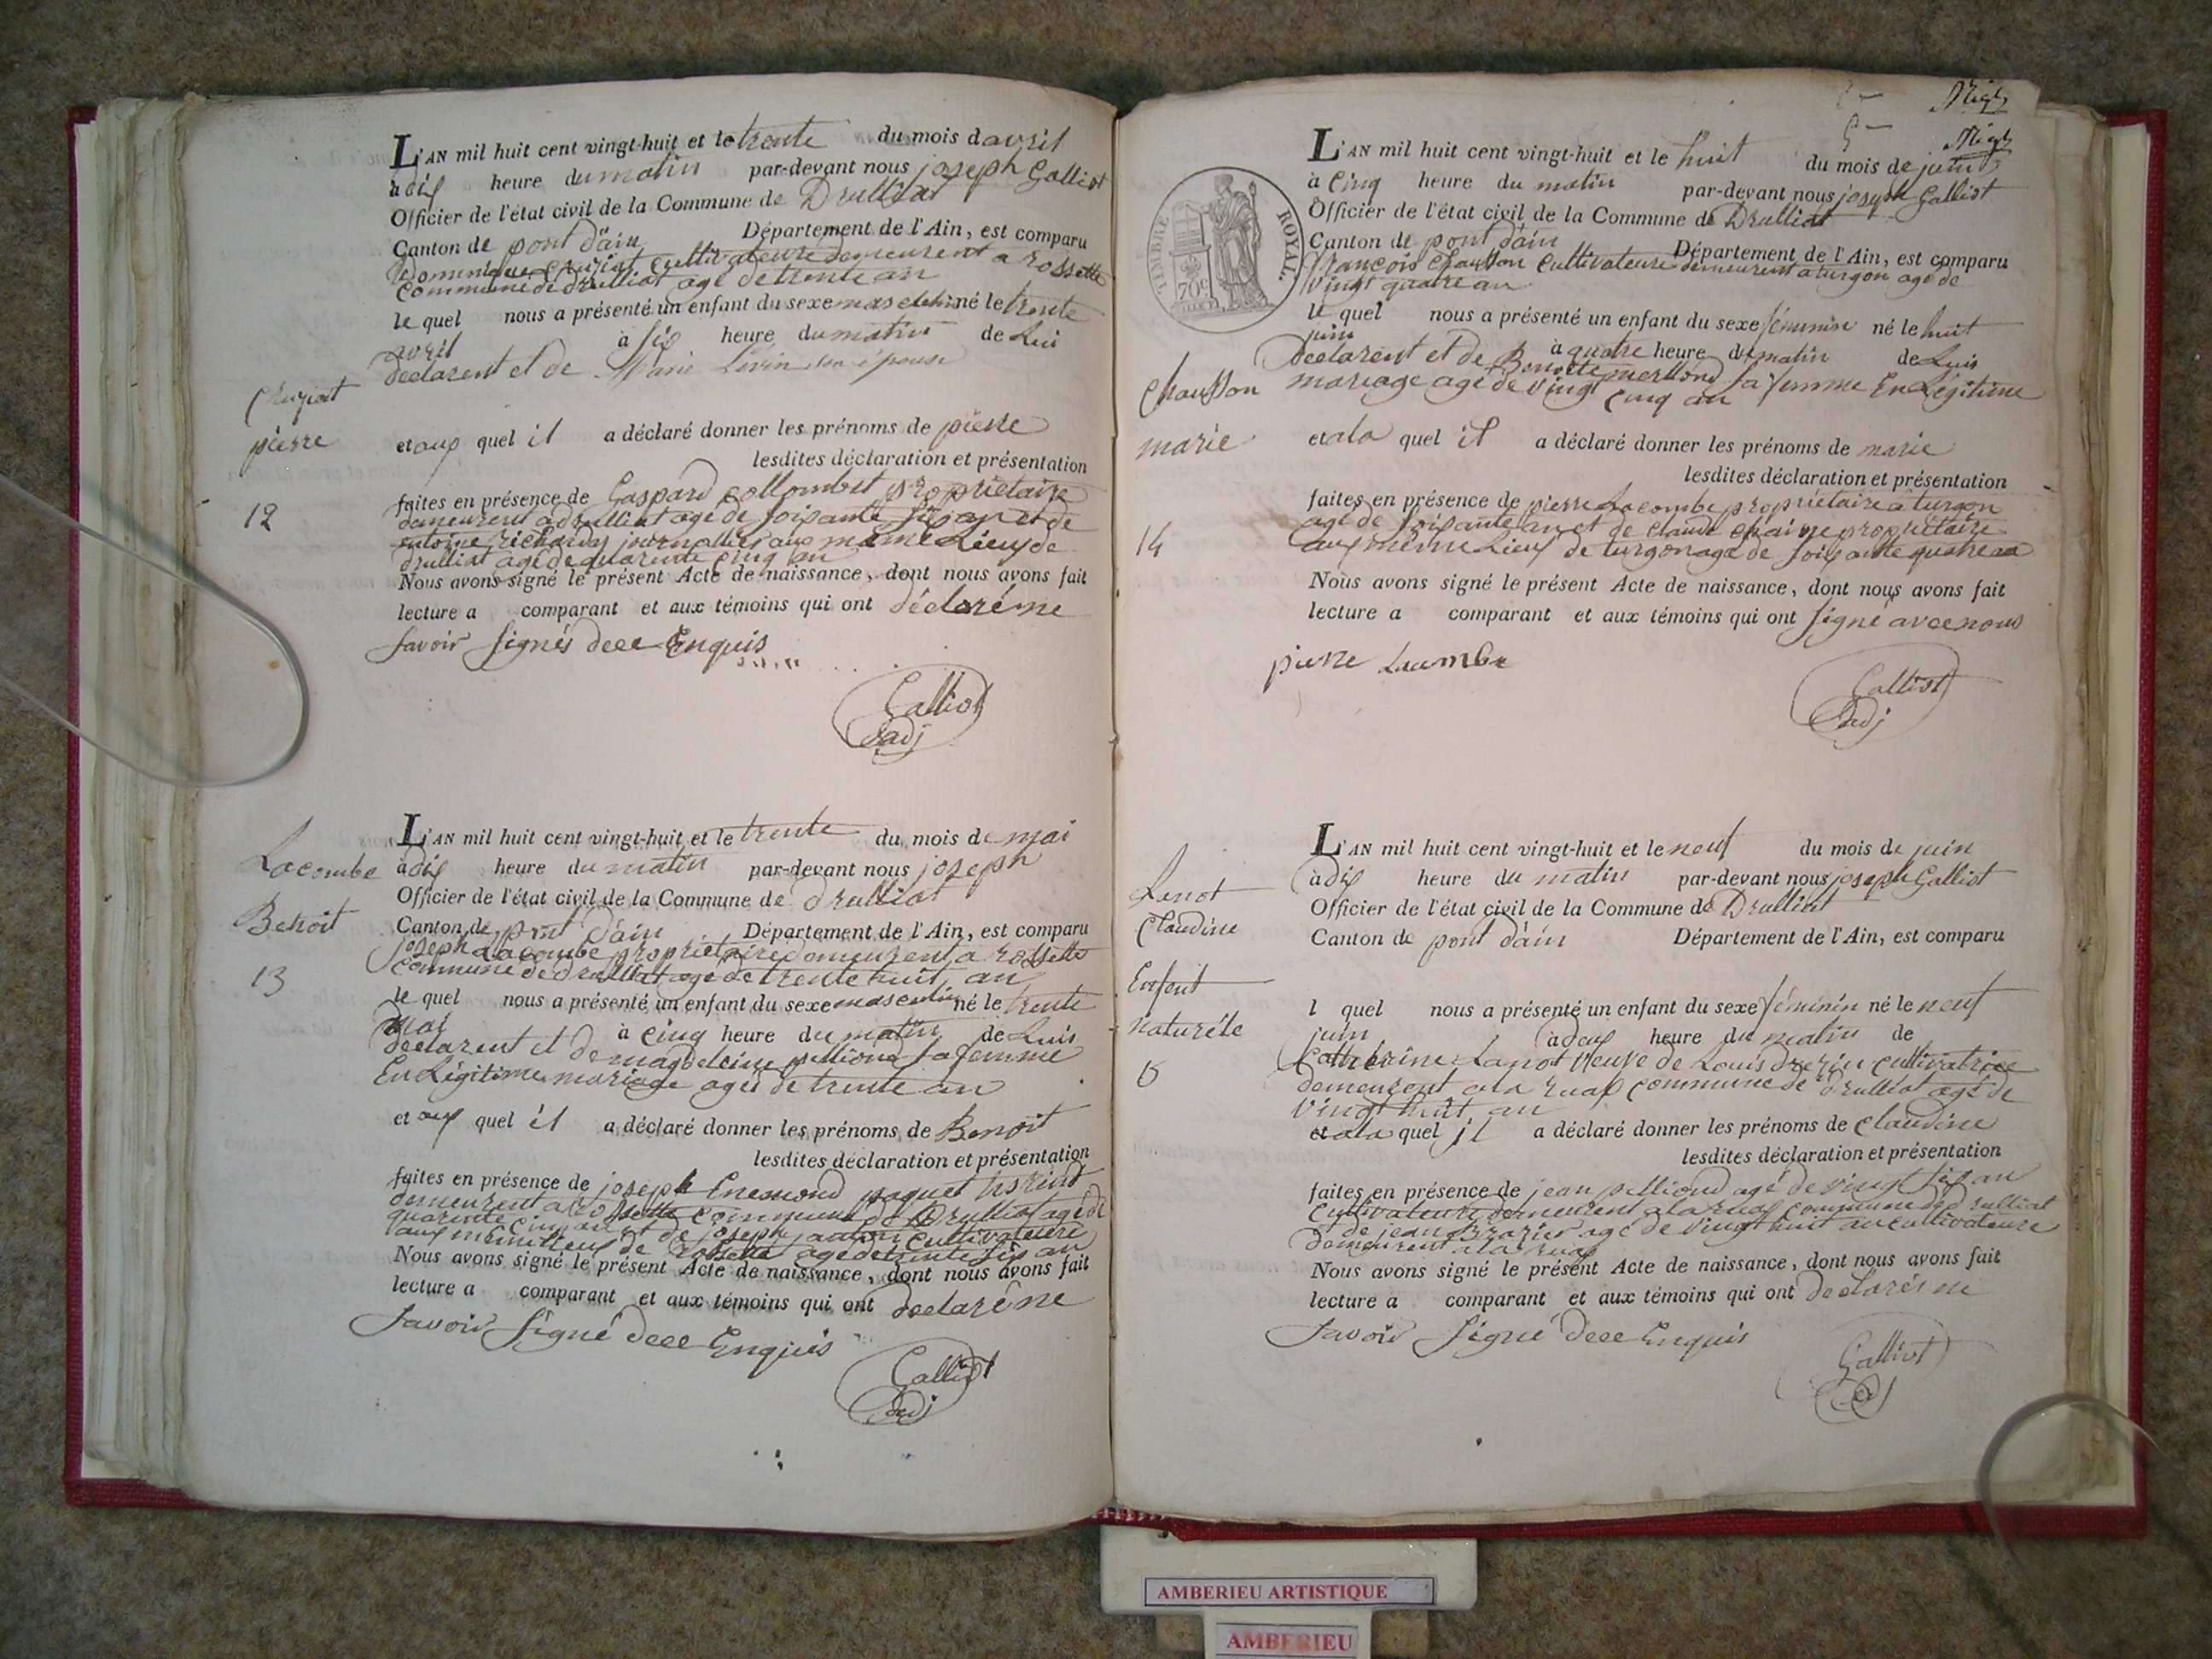 L'AN mil huit cent vingt-huit et le trente du mois d avril
à dix heure du matin par-devant nous joseph Galliot
Officier de l'état civil de la Commune de Drulliat
Canton de pont d'ain Département de l'Ain, est comparu
Dominique Cruziat cultivateure demeurent a rossette
commune de drulliat agé de trente an
le quel nous a présenté un enfant du sexe masculin né le trente
avril à six heure du matin de Lui
declarent et de Marie son épouse
Cruziat
pierre
12
et aux quel il a déclaré donner les prénoms de pierre
lesdites déclaration et présentation
faites en présence de Gaspard collombet propriétaire
demeurent a drulliat agé de soisante six an et de
antoine richardy journallier aux même Lieux de
drulliat agé de quarente cinq an
Nous avons signé le présent Acte de naissance, dont nous avons fait
lecture a comparant et aux témoins qui ont déclaré ne
savoir signés dece Enquis
Galliot
adj
Lacombe
Benoit
13
L'AN mil huit cent vingt-huit et le trente du mois de mai
à dix heure du matin par-devant nous joseph
Officier de l'état civil de la Commune de drulliat
Canton de pont d'ain Département de l'Ain, est comparu
joseph Lacombe propriétaire demeurent a rossette
commune de drulliat agé de trente huit an
le quel nous a présenté un enfant du sexe masculin né le trente
mai à cinq heure du matin de Luis
declarent et de magdeleine pelliond sa femme
En Légitime mariage agés de trente an
et aux quel il a déclaré donner les prénoms de Benoit
lesdites déclaration et présentation
faites en présence de joseph Enemond paquet
demeurent a rossette commune de Drulliat agé de
quarente cinq an et de joseph cultivateure
aux même Lieux de rossette agé de trente six an
Nous avons signé le présent Acte de naissance, dont nous avons fait
lecture a comparant et aux témoins qui ont declaré ne
savoir signé dece Enquis
Galliot
adj
L'AN mil huit cent vingt-huit et le huit du mois de juin
à cinq heure du matin par-devant nous joseph Galliot
Officier de l'état civil de la Commune de Drulliat
Canton de pont d'ain Département de l'Ain, est comparu
françois chausson cultivateure demeurent a turgon agé de
vingt quatre an
TIMBRE ROYAL
70c
le quel nous a présenté un enfant du sexe féminin né le huit
juin à quatre heure du matin de Luis
declarent et de Benoite merlond sa femme En Légitime
mariage agé de vingt cinq an
Chausson
marie
14
et ala quel il a déclaré donner les prénoms de marie
lesdites déclaration et présentation
faites en présence de pierre Lacombe propriétaire a turgon
agé de soisante an et de claude chaine propriétaire
aux même Lieux de turgon agé de soisante quatre an
Nous avons signé le présent Acte de naissance, dont nous avons fait
lecture a comparant et aux témoins qui ont signé avec nous
pierre Lacombe
Galliot
adj
Lanot
Claudine
Enfent
naturéle
15
L'AN mil huit cent vingt-huit et le neuf du mois de juin
à dix heure du matin par-devant nous joseph Galliot
Officier de l'état civil de la Commune de Drulliat
Canton de pont d'ain Département de l'Ain, est comparu
l quel nous a présenté un enfant du sexe féminin né le neuf
juin à deux heure du matin de
Catherine Lanot veuve de Louis cultivatrice
demeurent a la ruaz commune de drulliat agé de
vingt huit an
et ala quel il a déclaré donner les prénoms de claudine
lesdites déclaration et présentation
faites en présence de jean pelliond agé de vingt six an
cultivateure demeurent a la ruaz commune de drulliat
de jean Brazier agé de vingt huit an cultivateure
demeurent a la ruaz
Nous avons signé le présent Acte de naissance, dont nous avons fait
lecture a comparant et aux témoins qui ont declarés ne
savoir signé dece Enquis
Galliot
adj
AMBERIEU ARTISTIQUE
AMBERIEU